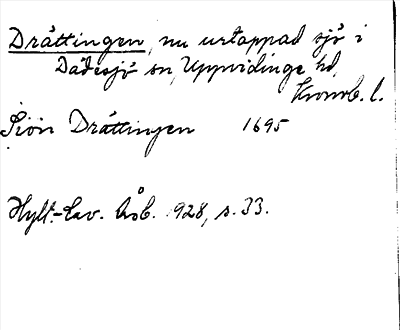 Dråttingen, nu urtappad sjö i
Dädesjö sn, Uppvidinge hd,
Kronob. l.
Siön Dråttingen 1695
Hylt.-Cav. Åsb. 1928, s. 33.